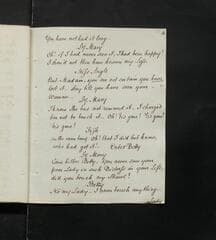 You have not had it long.
Ly Mary
Oh! if I had never seen it, I had been happy!
I should not then have known my Wife.
Miss Angle
But Madam, you are not certain you have
lost it. Stay till you have seen your
Woman.
Ly Mary
I know She has not removed it. I charged
her not to touch it. Oh! 'tis gone! 'tis gone!
'tis gone!
in the room long. Oh! that I did but know,
who had got it. Enter Betty
Ly Mary
Come hither Betty. You never saw your
poor Lady in such Distress in your Life,
did you touch my Shawl?
Betty
No my Lady. I never touch any thing.